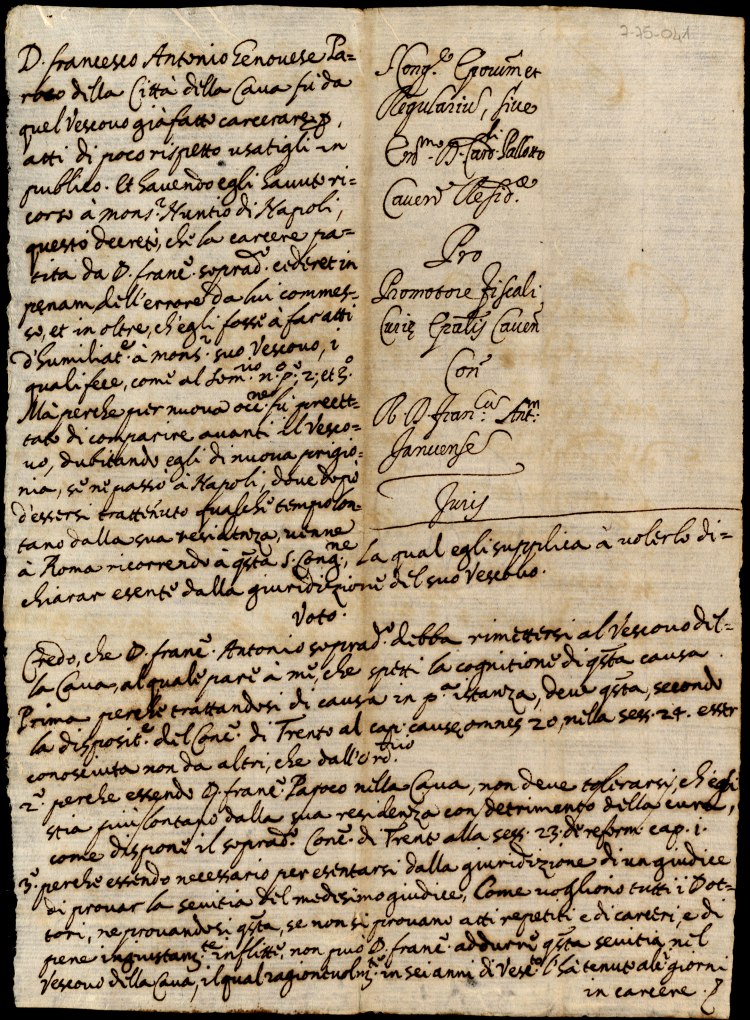 7-75-041
D. Francesco Antonio Genovese Pa=
roco della Città della Cava fù da
quel Vescovo già fatto carcerare p
atti di poco rispetto usatigli in
publico. Et havendo egli havuto ri=
corso à mons.r Nuntio di Napoli,
questo decretò, che la carcere pa=
tita da D. franc.o soprad.o cederet in
penam dell'errore da lui commes=
so, et in oltre, ch'egli fosse à far atti
d'humiliat.e à mons.r suo Vescovo, i
quali fece, come al som.rio n.o p.o 2; et 3.o
Mà perche per nuova occ.ne fù precet=
tato di comparire avanti il Vesco=
vo, dubitando egli di nuova prigio=
nia, se ne passò à Napoli, dove dopò
d'essersi trattenuto qualche tempo lon=
tano dalla sua residenza, venne
à Roma ricorrendo à q.sta S. Cong.ne,
la qual egli supplica à volerlo di=
chiarar esente dalla giuridizione del suo Vescovo.
S Cong.e Eporum et
Regularium, sive
Em.mo D. Card.li Pallotto
Caven Resid.e
Pro
Promotore Fiscali
Curię Epalis Caven
Con
R. D. Fran.cum Ant.m
Januense
Juris
Voto.
Credo, che D. franc.o Antonio soprad.o debba rimettersi al Vescovo del=
la Cava, al quale pare à me, che spetti la cognitione di q.sta causa.
Prima perche trattandosi di causa in p.a istanza, deve q.sta, secondo
la disposit.e del Conc.o di Trento al cap: causę omnes 20, nella sess. 24. esser
conosciuta non da altri, che dall'ord.rio
2.o perche essendo D. franc.o Paroco nella Cava, non deve tolerarsi, ch'egli
stia più lontano dalla sua residenza con detrimento della cura,
come dispone il soprad.o Conc.o di Trento alla sess. 23. de reform. cap. 1.
3.o perche essendo necessario per esentarsi dalla giuridizione di un giudice
di provar la sevitia del medesimo giudice, come vogliono tutti i Dot=
tori, ne provandosi q.sta, se non si provano atti repetiti e di carceri, e di
pene ingiustam.te inflitte, non può D. franc.o addurre q.sta sevitia nel
Vescovo della Cava, il qual ragionevolm.te in sei anni di Vesc.to l'hà tenuto alc.i giorni
in carcere.